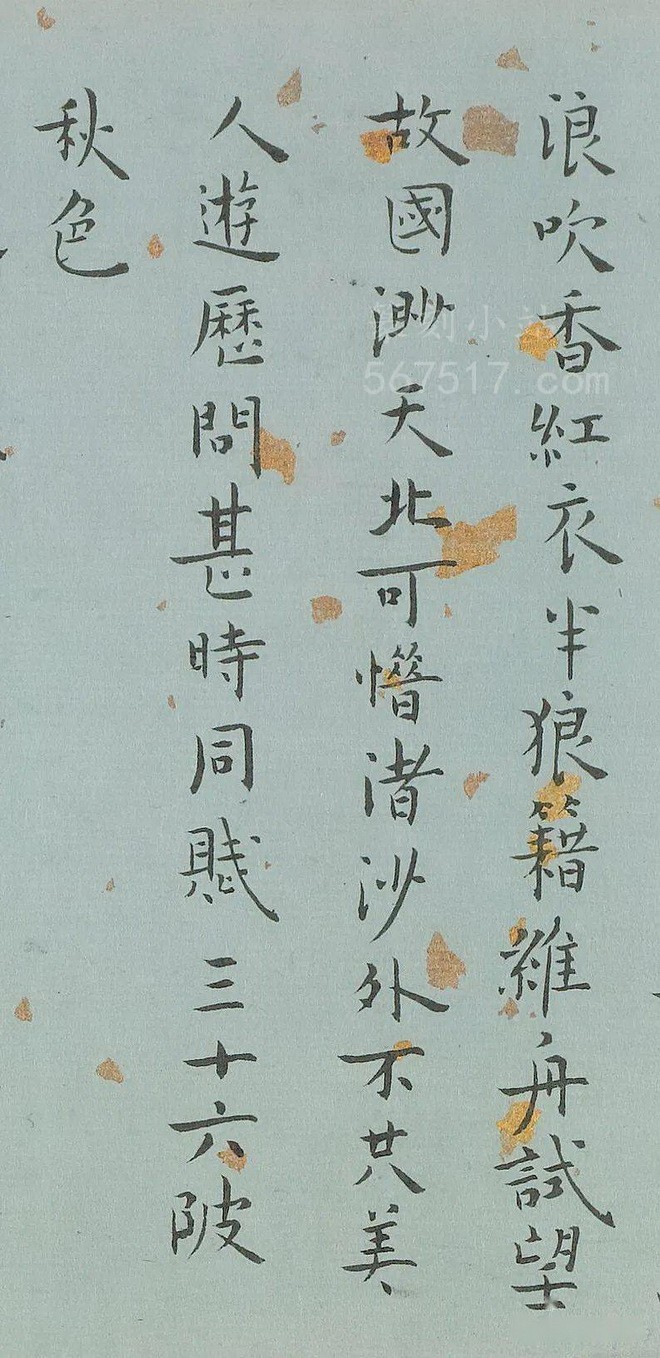 浪吹香紅衣半狼籍維舟試望
故國渺天北可惜渚沙外不共美
人遊歷問甚時同賦三十六陂
秋色
567517.com